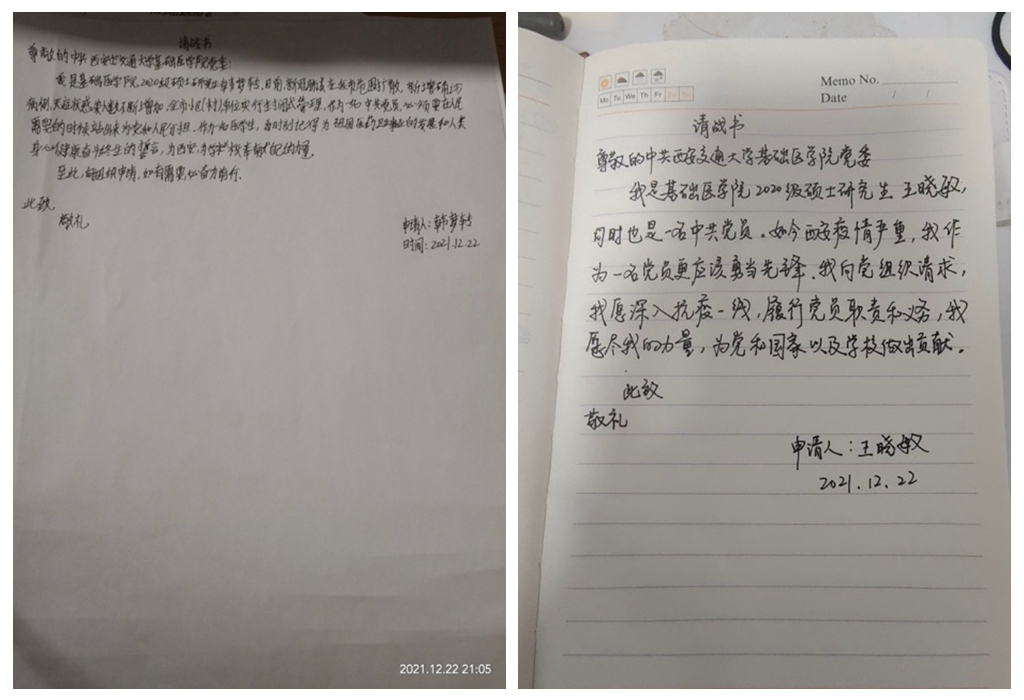 请战书
尊敬的中共西安交通大学基础医学院党委:
我是基础医学院2020级硕士研究生韩梦
病例,
离室的时候站出来为党和人民分担. 作为一名医学生, 时刻记得为祖国医药卫生事业的发展和人类
身心健康奋斗终生的誓言, 为西安, 为学校奉献自己的力量.
至此, 向组织申请, 如有需要, 必奋力前行.
此致
敬礼
申请人: 韩梦
时间: 2021.12.22
2021.12.22 21:05
Memo No.
Mo Tu We Th Fr Sa Su
Date / /
请战书
尊敬的中共西安交通大学基础医学院党委
我是基础医学院2020级硕士研究生王晓敏,
同时也是一名中共党员. 如今西安疫情严重, 我作
为一名党员更应该勇当先锋. 我向党组织请求,
我愿深入抗疫一线, 履行党员职责和义务, 我
愿尽我的力量, 为党和国家以及学校做出贡献.
此致
敬礼
申请人: 王晓敏
2021.12.22